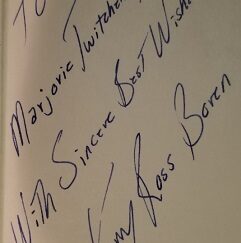 To
Marjorie Twitchell
With Sincere Best Wishes
Ross Boven